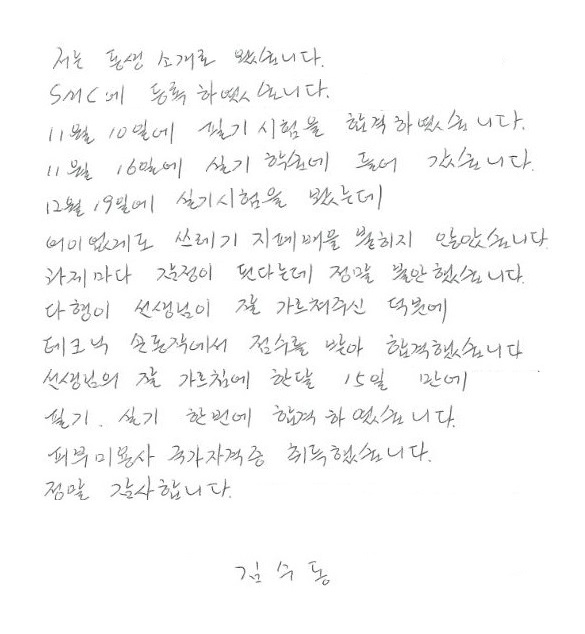 저는 동생 소개로 왔습니다.
SMC에 등록 하였습니다.
11월 10일에 필기시험을 합격하였습니다.
11월 16일에 실기 학습에 들어 갔습니다.
12월 19일에 실기시험을 봤는데
어이없게도 쓰레기 지폐백을 붙히지 않았습니다
과제마다 감정이 된다는데 정말 불안했습니다.
다행이 선생님이 잘 가르쳐주신 덕븟에
테크닉 손동작에서 점수를 받아 합격했습니다
선생님의 잘 가르침에 한달 15일 만에
필기. 실기 한번에 합격하였습니다.
피부미용사 국가자격증 취득했습니다.
정말 감사합니다.
김수동